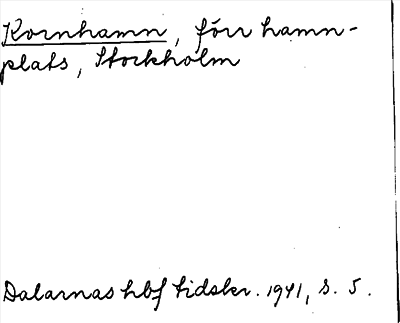 Kornhamn, förr hamn-
plats, Stockholm
Dalarnas hbf tidskr. 1941, s. 5.